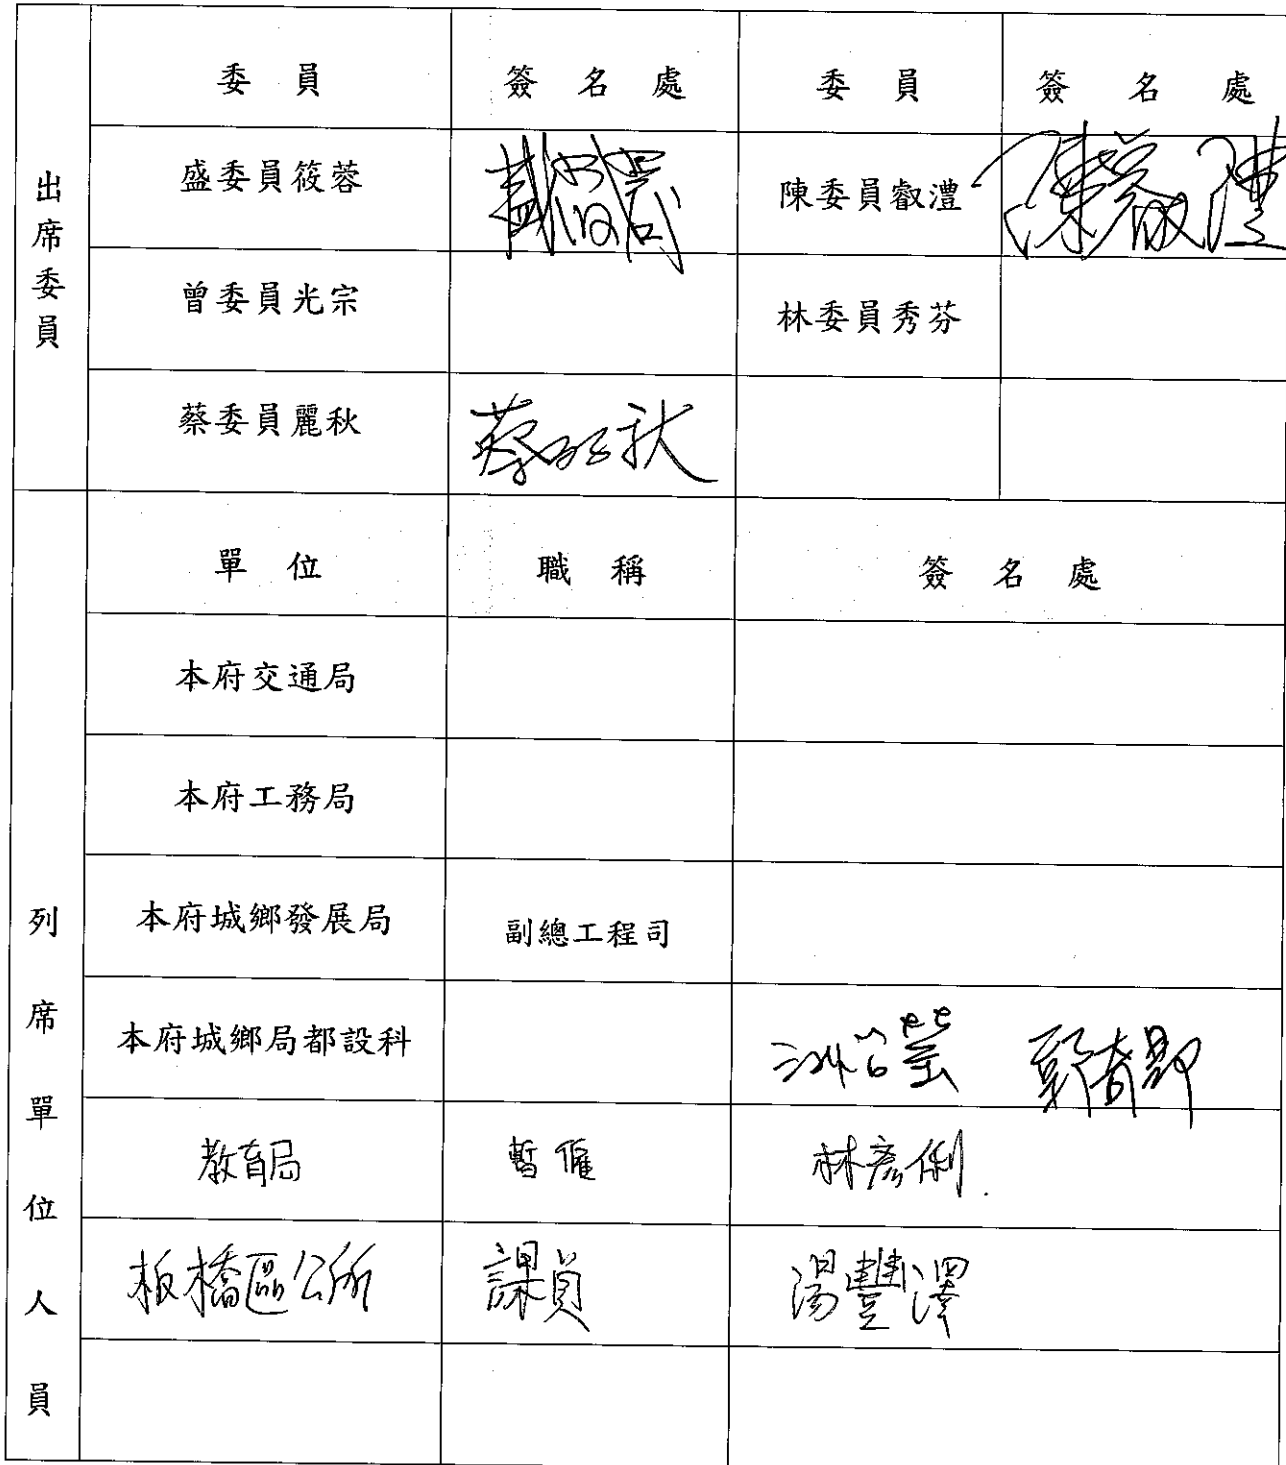 出席委員
委員 簽名處 委員 簽名處
盛委員筱蓉 盛筱蓉 陳委員叡澧 陳叡澧
曾委員光宗 林委員秀芬
蔡委員麗秋 蔡麗秋
列席單位人員
單位 職稱 簽名處
本府交通局
本府工務局
本府城鄉發展局 副總工程司
本府城鄉局都設科
教育局 暫僱 林彥俐
板橋區公所 課員 湯豐澤